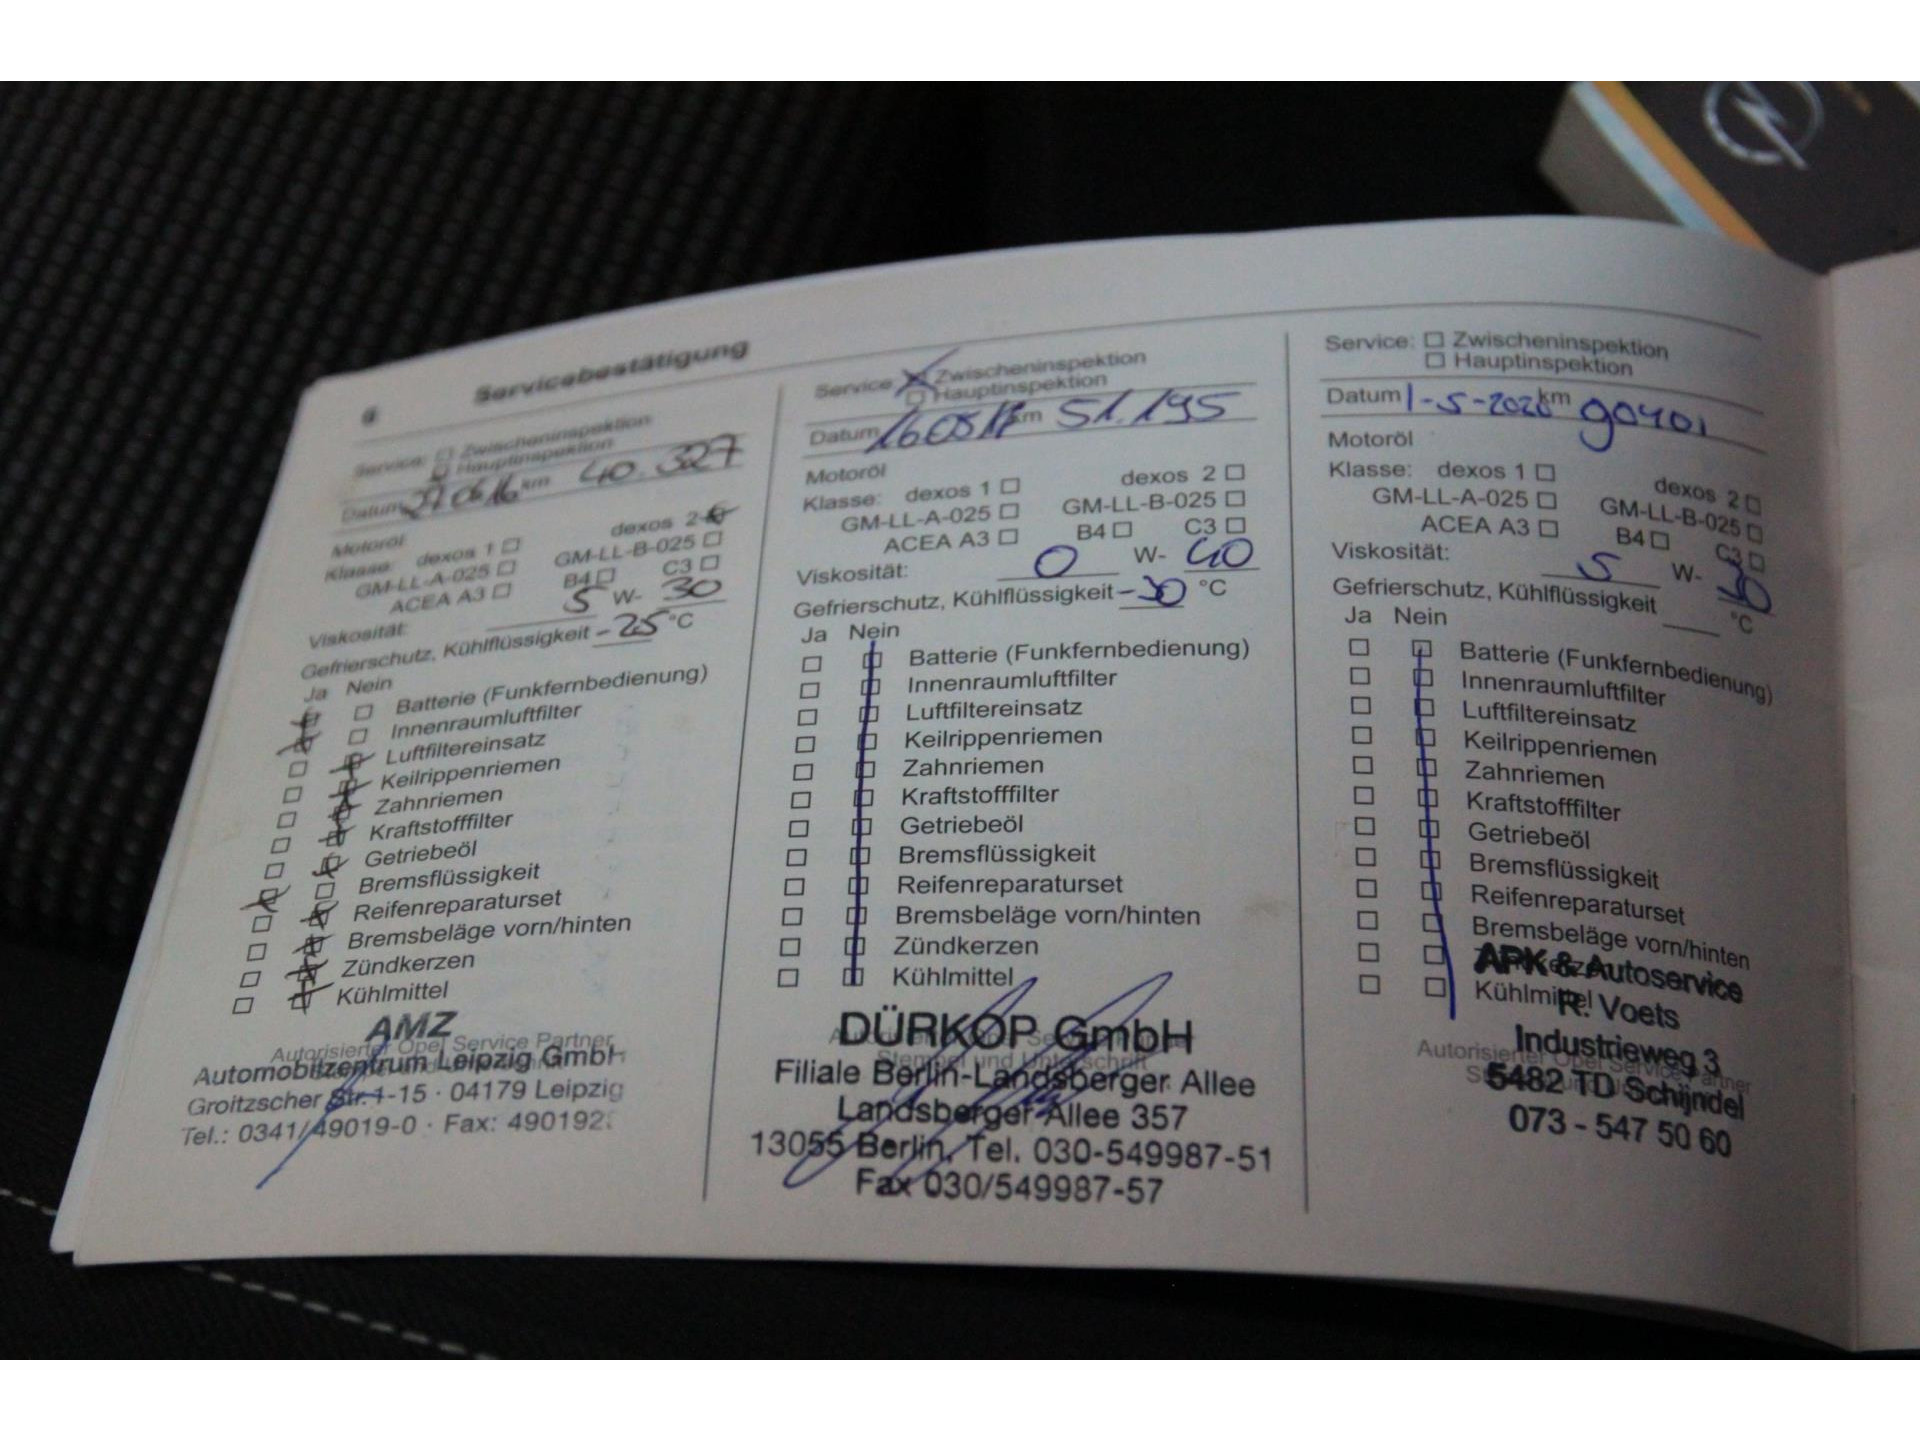 6 Servicebestätigung
Service: Zwischeninspektion
Hauptinspektion
Datum 27.06.16 km 40.327
Motoröl
Klasse: dexos 1 dexos 2
GM-LL-A-025 GM-LL-B-025
ACEA A3 B4 C3
Viskosität: 5 W- 30
Gefrierschutz, Kühlflüssigkeit -25 °C
Ja Nein
Batterie (Funkfernbedienung)
Innenraumluftfilter
Luftfiltereinsatz
Keilrippenriemen
Zahnriemen
Kraftstofffilter
Getriebeöl
Bremsflüssigkeit
Reifenreparaturset
Bremsbeläge vorn/hinten
Zündkerzen
Kühlmittel
AMZ
Autorisierter Opel Service Partner
Automobilzentrum Leipzig GmbH
Groitzscher Str. 1-15 · 04179 Leipzig
Tel.: 0341/49019-0 · Fax: 490192
Service Zwischeninspektion
Hauptinspektion
Datum 160517 km 51.195
Motoröl
Klasse: dexos 1 dexos 2
GM-LL-A-025 GM-LL-B-025
ACEA A3 B4 C3
Viskosität: 0 W- 40
Gefrierschutz, Kühlflüssigkeit -30 °C
Ja Nein
Batterie (Funkfernbedienung)
Innenraumluftfilter
Luftfiltereinsatz
Keilrippenriemen
Zahnriemen
Kraftstofffilter
Getriebeöl
Bremsflüssigkeit
Reifenreparaturset
Bremsbeläge vorn/hinten
Zündkerzen
Kühlmittel
DÜRKOP GmbH
Stempel und Unterschrift
Filiale Berlin-Landsberger Allee
Landsberger Allee 357
13055 Berlin, Tel. 030-549987-51
Fax 030/549987-57
Service: Zwischeninspektion
Hauptinspektion
Datum 1-5-2020 km 90401
Motoröl
Klasse: dexos 1 dexos 2
GM-LL-A-025 GM-LL-B-025
ACEA A3 B4 C3
Viskosität: 5 W- 30
Gefrierschutz, Kühlflüssigkeit °C
Ja Nein
Batterie (Funkfernbedienung)
Innenraumluftfilter
Luftfiltereinsatz
Keilrippenriemen
Zahnriemen
Kraftstofffilter
Getriebeöl
Bremsflüssigkeit
Reifenreparaturset
Bremsbeläge vorn/hinten
APK & Autoservice
Kühlmittel
R. Voets
Industrieweg 3
Autorisierter Opel Service Partner
5482 TD Schijndel
073 - 547 50 60